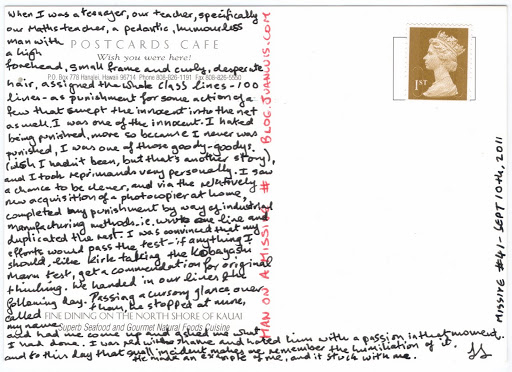 When I was a teenager, our teacher, specifically
our Maths teacher, a pedantic, humourless
man with
POSTCARDS CAFE
a high
Wish you were here!
forehead, small frame and curly, desperate
P.O. Box 778 Hanalei, Hawaii 96714 Phone 808-826-1191 Fax 808-826-5550
hair, assigned the whole class lines - 100
lines - as punishment for some action of a
few that swept the innocent into the net
as well. I was one of the innocent. I hated
being punished, more so because I never was
punished, I was one of those goody-goodys.
(wish I hadn't been, but that's another story),
and I took reprimands very personally. I saw
a chance to be clever, and via the relatively
new acquisition of a photocopier at home,
completed my punishment by way of industrial
manufacturing methods - i.e. wrote one line and
duplicated the rest. I was convinced that my
efforts would pass the test - if anything I
should, like Kirk taking the Kobayashi
Maru test, get a commendation for original
thinking. We handed in our lines the
following day. Passing a cursory glance over
them, he stopped at mine,
called
FINE DINING ON THE NORTH SHORE OF KAUAI
my name
Superb Seafood and Gourmet Natural Foods Cuisine
and had me come up and asked me what
I had done. I was red with shame and hated him with a passion in that moment.
and to this day that small incident makes me remember the humiliation of it.
He made an example of me, and it stuck with me.
MAN ON A MISSIVE # BLOG.JUANUIS.COM
1ST
MISSIVE #41 - SEPT 10TH, 2011